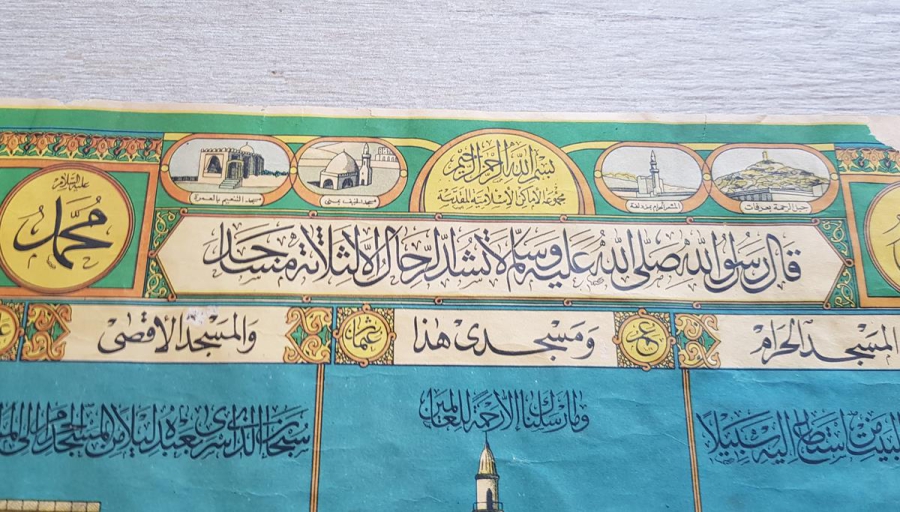 بسم الله الرحمن الرحيم
مجموعة الأماكن الإسلامية المقدسة
جبل الرحمة بعرفات
المشعر الحرام مزدلفة
مسجد الخيف بمنى
مسجد التنعيم بالعمرة
محمد
عليه السلام
قال رسول الله صلى الله عليه وسلم لا تشد الرحال إلا لثلاثة مساجد
المسجد الحرام
عمر
ومسجدي هذا
عثمان
والمسجد الأقصى
البيت من استطاع إليه سبيلا
وما أرسلناك إلا رحمة للعالمين
سبحان الذي أسرى بعبده ليلا من المسجد الحرام إلى